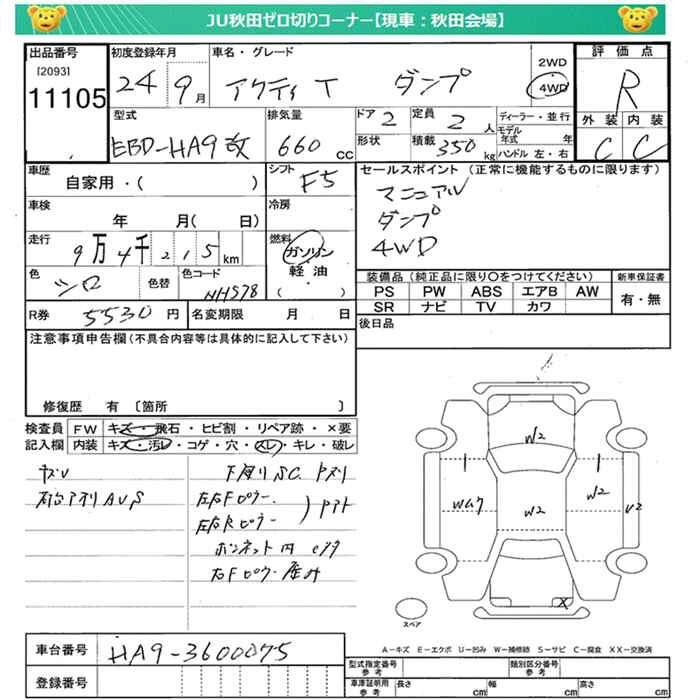 JU秋田ゼロ切りコーナー【現車：秋田会場】
出品番号 初度登録年月 車名・グレード 2WD 評価点
[2093] 24 9月 アクティ T ダンプ 4WD R
11105
型式 排気量 ドア 2 定員 2 人 ディーラー・並行 外装 内装
EBD-HA9改 660 cc 形状 積載 350 kg モデル年式 年 C C
ハンドル 左・右
車歴 シフト F5 セールスポイント (正常に機能するものに限ります)
自家用・( ) マニュアル
車検 冷房 ダンプ
年 月( 日) 4WD
走行 9万4千215km 燃料 ガソリン
軽油・( )
色 シロ 色替 色コード NH578 装備品 (純正品に限り〇をつけてください) 新車保証書
PS PW ABS エアB AW 有・無
SR ナビ TV カワ
R券 5530 円 名変期限 月 日 後日品
注意事項申告欄(不具合内容等は具体的に記入して下さい)
修復歴 有 〔箇所 〕
検査員 FW キズ・飛石・ヒビ割・リペア跡・×要
記入欄 内装 キズ・汚レ・コゲ・穴・スレ・キレ・破レ
下廻りSC.
左右Fピラー.
左右Rピラー
ボンネット内
右Fピラー
W2
W2
W2
U2
X
スペア
A-キズ E-エクボ U-凹み W-補修跡 S-サビ C-腐食 XX-交換済
車台番号 HA9-3600075 型式指定番号 参考 類別区分番号 参考
登録番号 車庫証明用 参考 長さ cm 幅 cm 高さ cm